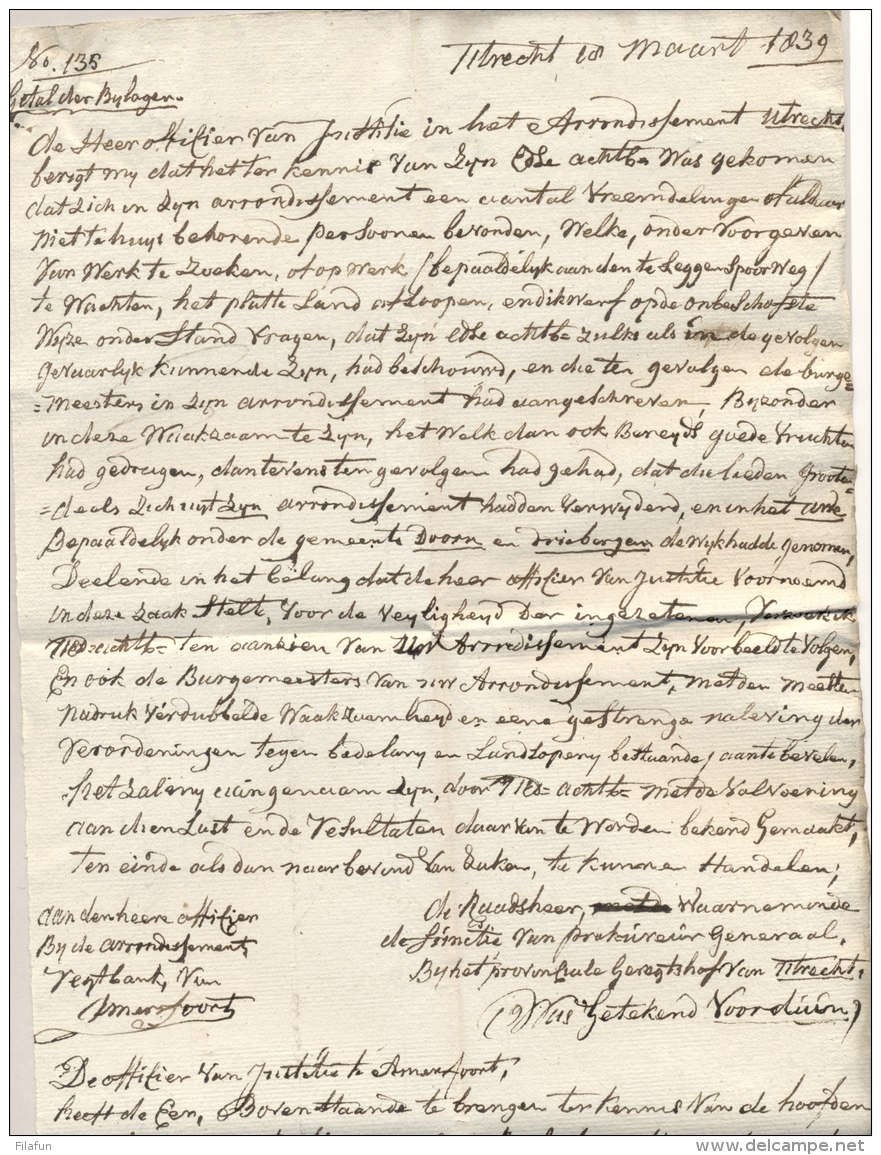 No. 135
Utrecht 18 Maart 1839
Getal der Bylagen
de Heer offisier van Justitie in het Arrondissement Utrecht,
berigt my dat het ter kennis van zyn Edle achtb= was gekomen
dat zich in zyn arrondissement een aantal vreemdelingen of aldaar
niet te huys behorende persoonen bevonden, welke, onder voorgeven
van werk te zoeken, of op werk / bepaaldelyk aan den te leggen Spoorweg /
te wachten, het platte Land afloopen, en dikwerf op de onbeschofste
wyze onderstand vragen, dat zyn Edle achtb= zulks als in de gevolgen
gevaarlyk kunnende zyn, had beschouwd, en die ten gevolgen de burge=
=meesters in zyn arrondissement had aangeschreven, Byzonder
in deze waakzaam te zyn, het welk dan ook Bereyds goede vruchten
had gedragen, dan tevens ten gevolgen had gehad, dat die lieden groten=
=deels zich uyt zyn arrondissement hadden verwyderd, en in het uwe
Bepaaldelyk onder de gemeente Doorn en driebergen de wyk hadde genomen,
Deelende in het belang dat de heer offisier van Justitie voornoemd
in deze zaak Stelt, voor de veyligheyd der ingezetenen, verzoek ik
UEd= achtb= ten aanzien van Uw Arrondissement zyn voorbeeld te volgen,
En ook de Burgemeesters van uw Arrondissement, met den meesten
nadruk verdubbelde waakzaamheyd en eene gestrenge naleving der
verordeningen tegen bedelary en Landlopery bestaande, aan te bevelen,
het zal my aangenaam zyn, door UEd= achtb= met de volvoering
aan dien Last en de resultaten daar van te worden bekend Gemaakt,
ten einde als dan naar bevind van zaken, te kunnen Handelen;
aan den heere offisier
By de arrondissements
regtbank, van
Amersfoort
de Raadsheer, waarnemende
de functie van prokureur Generaal,
By het provinciale Geregtshof van Utrecht.
(Was Getekend Voorduin)
De offisier van Justitie te Amersfoort,
heeft de Eer, Bovenstaande te brengen ter kennis van de hoofden
Filafun
delcampe.net